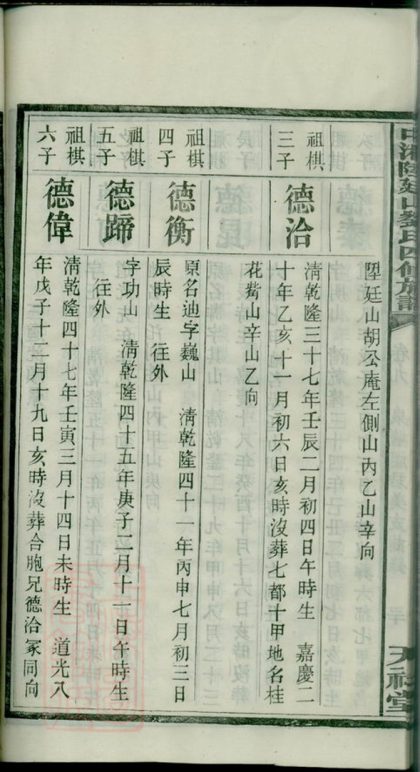 陞廷山胡公庵左側山內乙山辛向
祖棋
三子
德洽
清乾隆三十七年壬辰二月初四日午時生 嘉慶二
十年乙亥十一月初六日亥時沒葬七都十甲地名桂
花山辛山乙向
祖棋
四子
德衡
原名迪字巍山 清乾隆四十一年丙申七月初三日
辰時生 往外
祖棋
五子
德蹄
字功山 清乾隆四十五年庚子二月十一日午時生
往外
祖棋
六子
德偉
清乾隆四十七年壬寅三月十四日未時生 道光八
年戊子十二月十九日亥時沒葬合胞兄德洽冢同向
氏四修族譜
堂